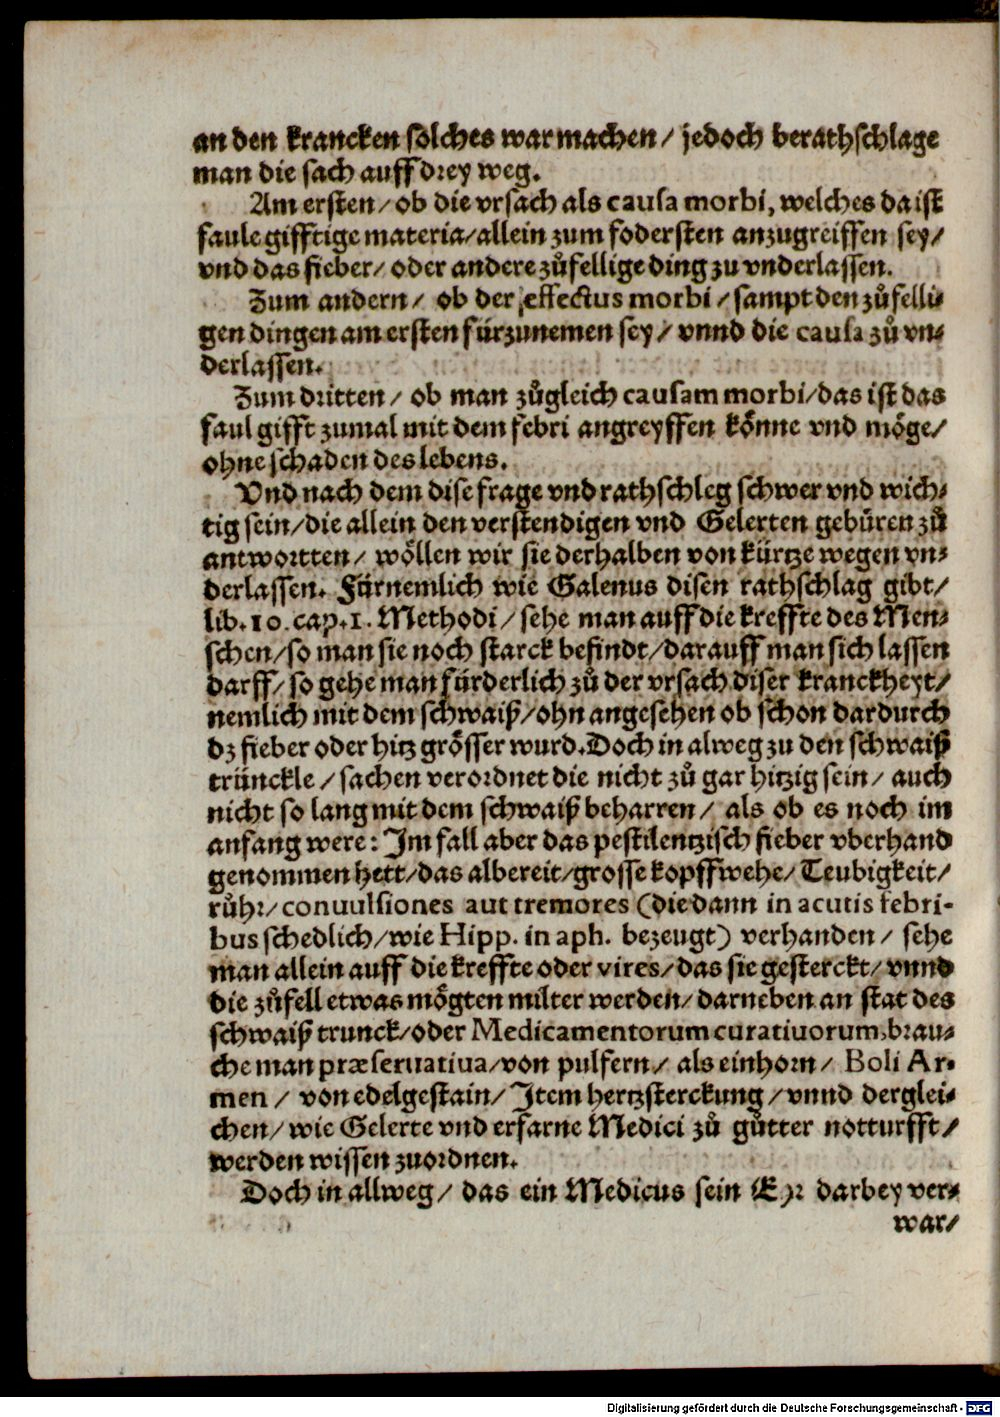 an den krancken solches war machen / jedoch berathschlage
man die sach auff drey weg.
Am ersten / ob die vrsach als causa morbi, welches da ist
faule gifftige materia / allein zum fodersten anzugreiffen sey /
vnd das fieber / oder andere zůfellige ding zu vnderlassen.
Zum andern / ob der effectus morbi / sampt den zůfelli-
gen dingen am ersten fürzunemen sey / vnnd die causa zů vn-
derlassen.
Zum dritten / ob man zůgleich causam morbi / das ist das
faul gifft zumal mit dem febri angreyffen könne vnd möge /
ohne schaden des lebens.
Vnd nach dem dise frage vnd rathschleg schwer vnd wich-
tig sein / die allein den verstendigen vnd Gelerten gebüren zů
antwortten / wöllen wir sie derhalben von kürtze wegen vn-
derlassen. Fürnemlich wie Galenus disen rathschlag gibt /
lib. 10. cap. 1. Methodi / sehe man auff die kreffte des Men-
schen / so man sie noch starck befindt / darauff man sich lassen
darff / so gehe man fürderlich zů der vrsach diser kranckheyt /
nemlich mit dem schwaiß / ohn angesehen ob schon dardurch
dz fieber oder hitz grösser wurd. Doch in alweg zu den schwaiß
trünckle / sachen verordnet die nicht zů gar hitzig sein / auch
nicht so lang mit dem schwaiß beharren / als ob es noch im
anfang were: Im fall aber das pestilentzisch fieber vberhand
genommen hett / das albereit / grosse kopffwehe / Teubigkeit /
růhr / conuulsiones aut tremores (die dann in acutis febri-
bus schedlich / wie Hipp. in aph. bezeugt) verhanden / sehe
man allein auff die kreffte oder vires / das sie gesterckt / vnnd
die zůfell etwas mögten milter werden / darneben an stat des
schwaiß trunck / oder Medicamentorum curatiuorum, brau-
che man præseruatiua / von pulfern / als einhorn / Boli Ar-
men / von edelgestain / Item hertzsterckung / vnnd derglei-
chen / wie Gelerte vnd erfarne Medici zů gůtter notturfft /
werden wissen zuordnen.
Doch in allweg / das ein Medicus sein Eyr darbey ver-
war /
Digitalisierung gefördert durch die Deutsche Forschungsgemeinschaft - DFG